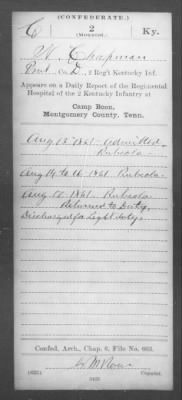 (CONFEDERATE.)
C 2 Ky.
(MOUNTED.)
Chapman
Pvt, Co. D, 2 Reg't Kentucky Inf.
Appears on a Daily Report of the Regimental
Hospital of the 2 Kentucky Infantry at
Camp Boon,
Montgomery County, Tenn.
Aug 13 1861 Admitted
Rubeola
Aug 14 to 16, 1861 Rubeola
Aug 1861 Rubeola
Returned to Duty
Discharged for Light duty
Confed. Arch., Chap. 6, File No.
Copyist.